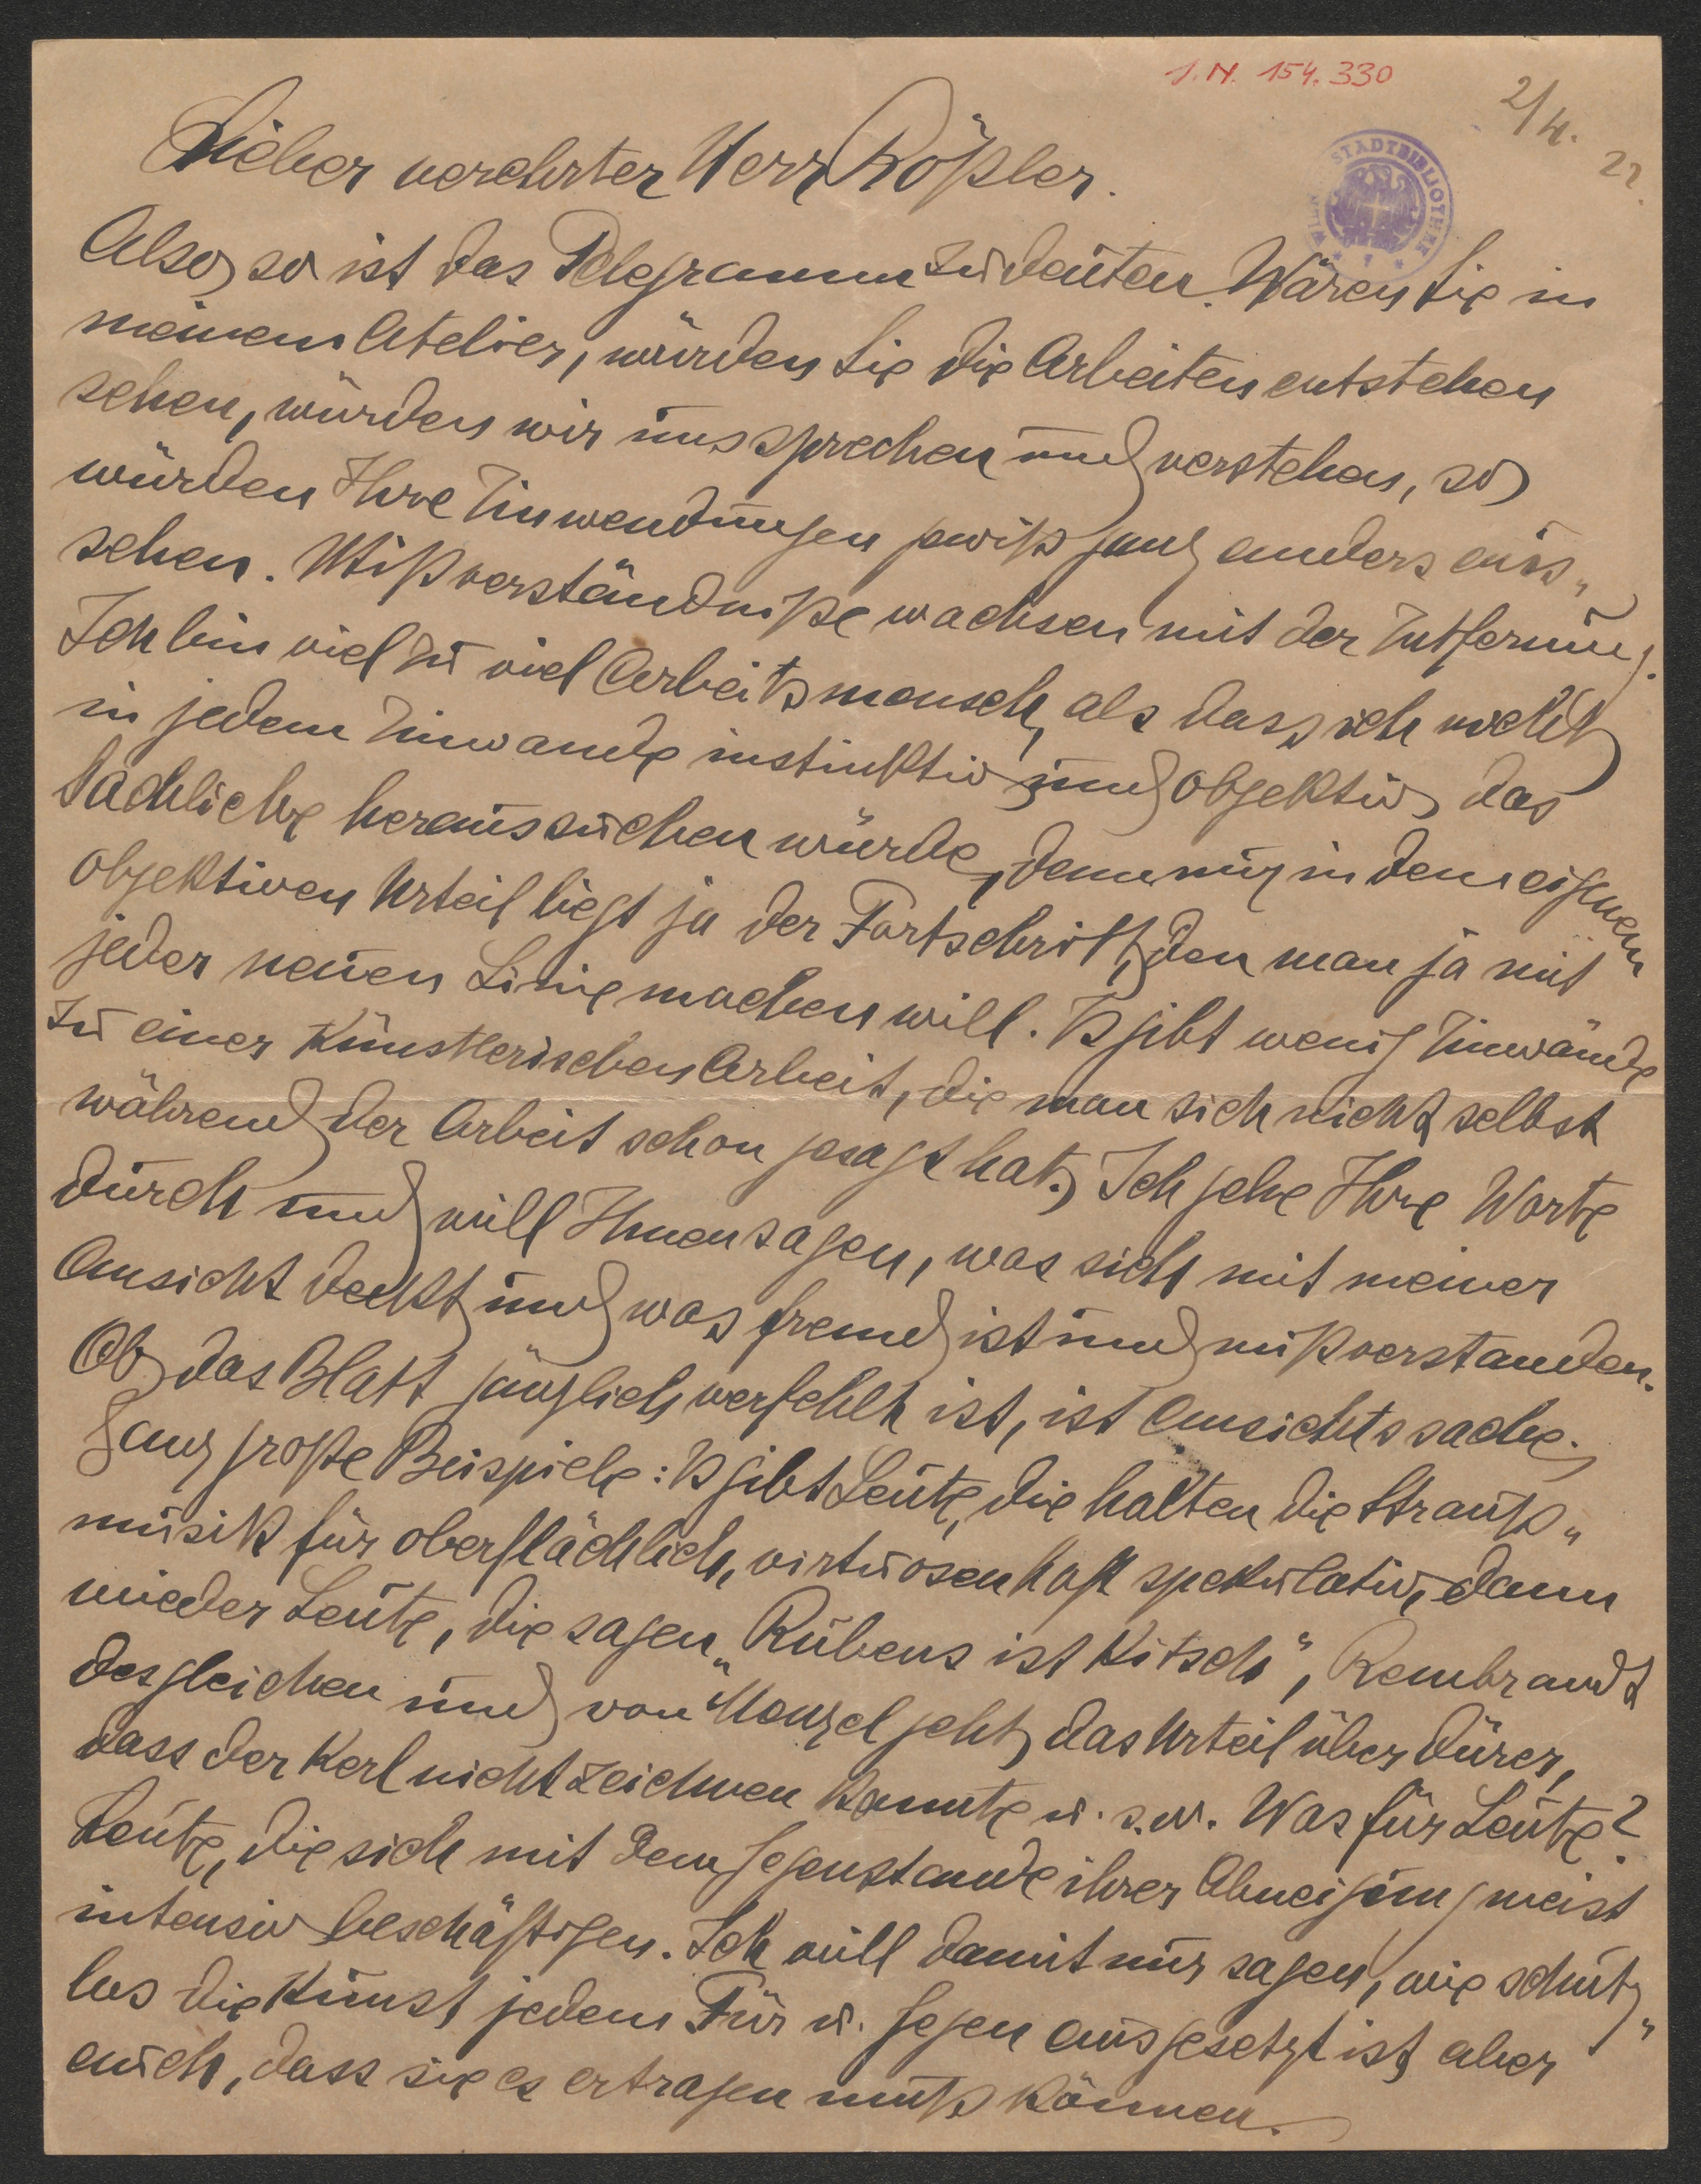 I.N. 154.330
2/4. 22.
STADTBIBLIOTHEK WIEN
Lieber verehrter Herr Rößler.
Also, so ist das Telegramm zu deuten. Wären Sie in
meinem Atelier, würden Sie die Arbeiten entstehen
sehen, würden wir uns sprechen und verstehen, so
würden Ihre Einwendungen gewiß ganz anders aus„
sehen. Mißverständniße wachsen mit der Entfernung.
Ich bin viel zu viel Arbeitsmensch, als dass ich nicht
in jedem Einwande instinktiv und objektiv, das
Sachliche heraussuchen würde, denn nur in dem eigenen
objektiven Urteil liegt ja der Fortschritt, den man ja mit
jeder neuen Linie machen will. Es gibt wenig Einwände
zu einer künstlerischen Arbeit, die man sich nicht selbst
während der Arbeit schon gesagt hat. Ich gehe Ihre Worte
durch und will Ihnen sagen, was sich mit meiner
Ansicht deckt und was fremd ist und mißverstanden.
Ob das Blatt gänzlich verfehlt ist, ist Ansichtssache.
Ganz große Beispiele: Es gibt Leute, die halten die Strauß„
musik für oberflächlich, virtuosenhaft spekulativ, dann
wieder Leute, die sagen „Rubens ist Kitsch", Rembrandt
desgleichen und von Menzel geht das Urteil über Dürer,
dass der Kerl nicht zeichnen konnte u.s.w. Was für Leute?
Leute, die sich mit dem Gegenstande ihrer Abneigung meist
intensiv beschäftigen. Ich will damit nur sagen, wie schutz„
los die Kunst jedem Für u. Gegen ausgesetzt ist, aber
auch, dass sie es ertragen muß können.